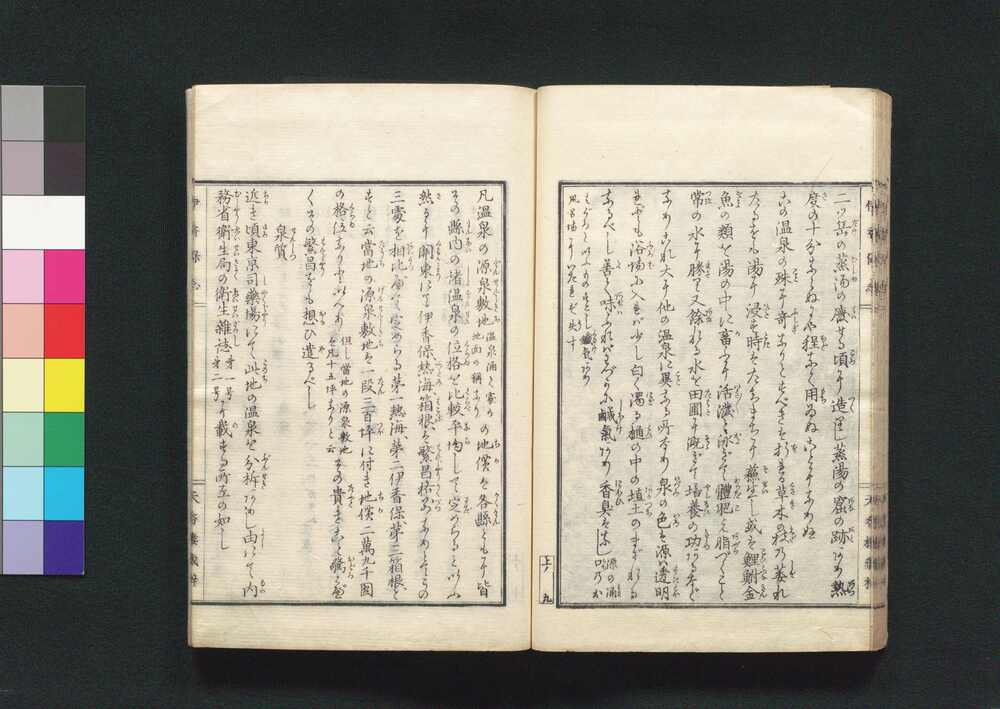 二ツ岳の蒸湯の盛なる頃に造りし蒸湯の窟の跡あり熱
度の十分ならぬにや程なく用ゐぬこととなりぬ
この温泉の殊に奇なりとすべきは折たる草木の枝乃萎れ
たるをも湯に浸す時はたちまちに蘇生し或は鯉鮒金
魚の類を湯の中に畜ふに活溌に泳ぎて體肥え脂づくこと
常の水に勝り又餘れる水を田圃に漑ぎて培養の功あるなど
なりこれ大に他の温泉に異なる所なり泉の色は源は透明
なれども浴場に入れば少し白く濁る樋の中の埴土のまじれる
なるべし善く味ふれば鹹氣あり香臭はなし
源の涌口乃
風呂場にいたれば失す
凡温泉の源泉敷地
温泉涌く處の
地面の稱なり
の地價を各縣ともに皆
その縣内の諸温泉の位格を比較平均して定めらるといふ
然るに關東にては伊香保熱海箱根を繁昌の格なりとその
三處を相比べて定めらる第一熱海第二伊香保第三箱根と
すと云當地の源泉敷地を一段三百坪に付き地價二萬九千圓
の格位なりといへり
但し當地の源泉敷地
は凡十五坪なりと云
その貴きこと驚くべ
くその繁昌をも想ひ遣るべし
泉質
近き頃東京司藥場にて此地の温泉を分析ありし由にて内
務省衛生局の衛生雜誌
第一号
第二号
に載する所左の如し
上ノ九